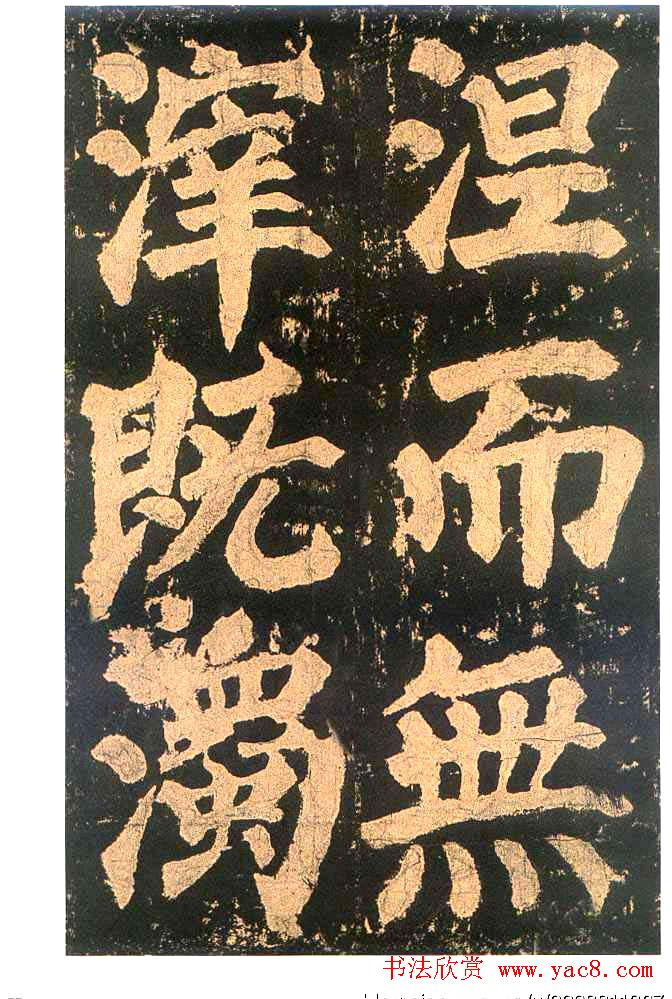 涅而無
滓既濁
书法欣赏 www.yac8.com